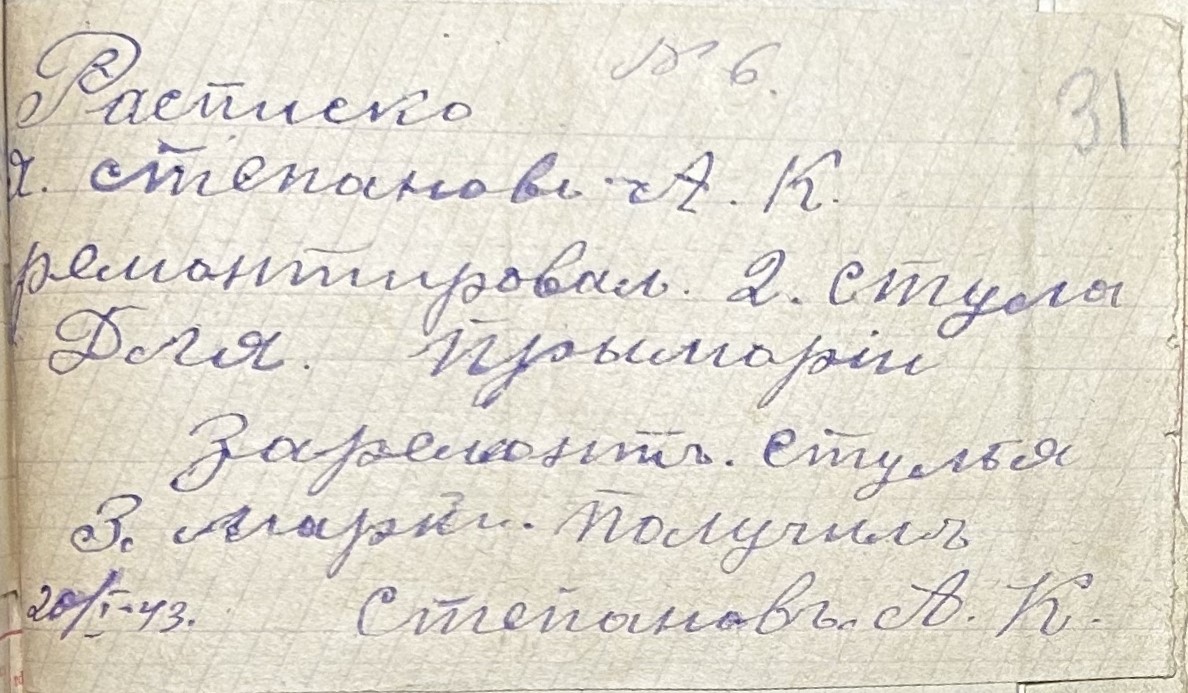 № 6.
31
Расписко
Я. степановъ А. К.
ремонтировал. 2. стула
Для. прымарiи
Заремонтъ. стулья
3. марки. получилъ
20/I-43. Степановъ. А. К.